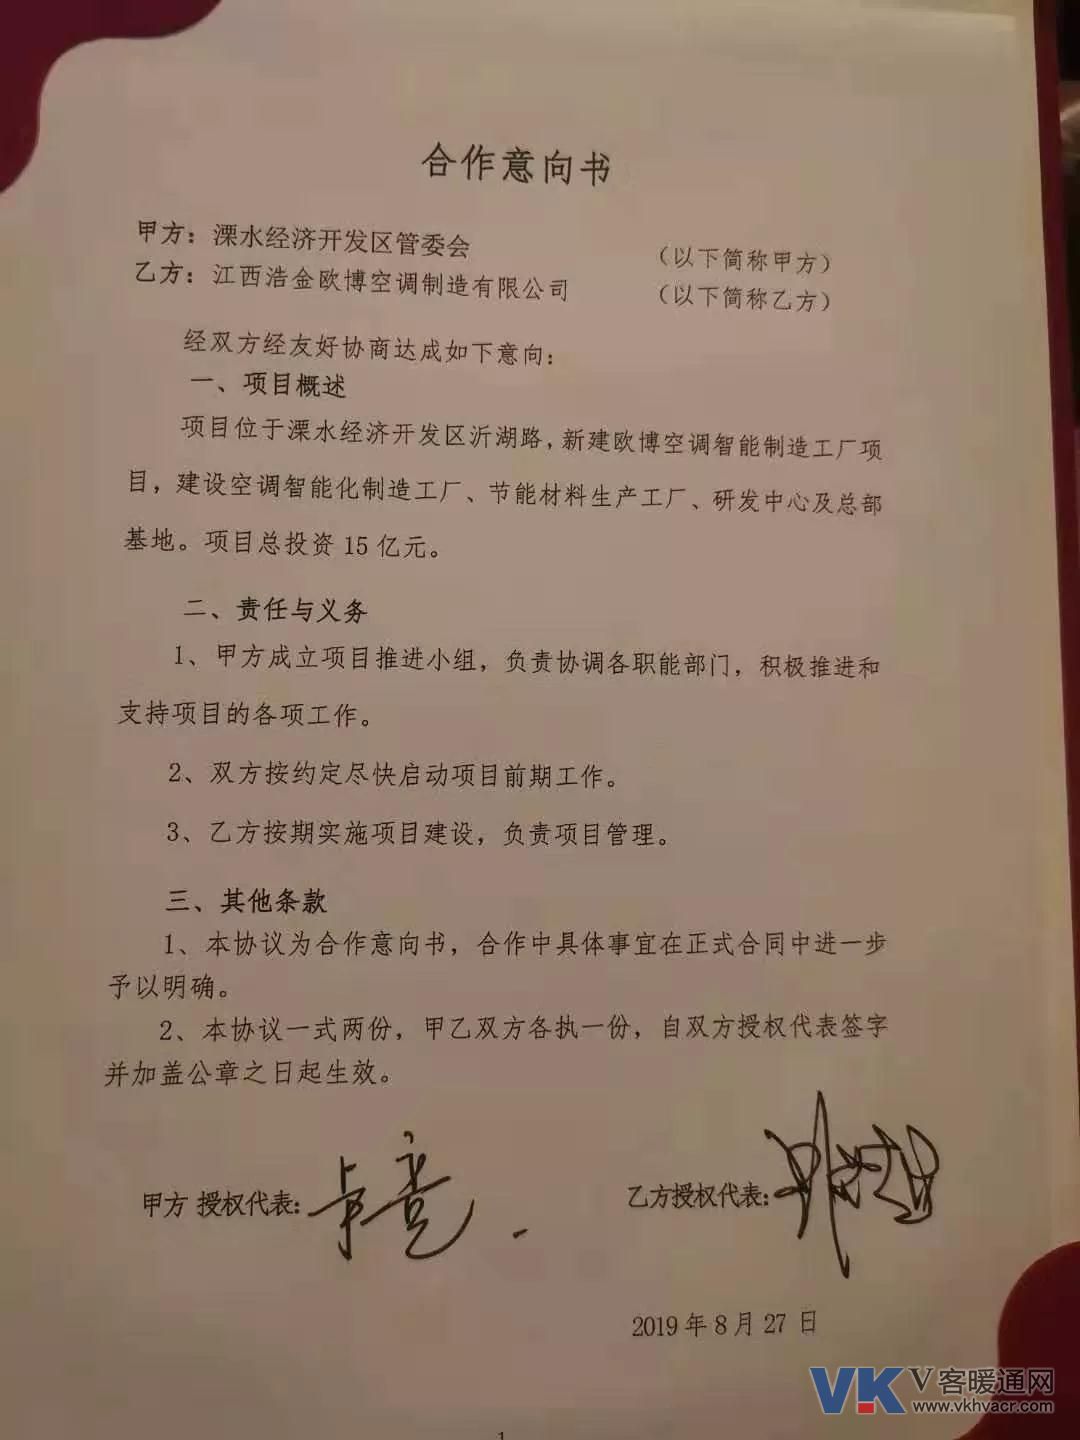 合作意向书
甲方：溧水经济开发区管委会 （以下简称甲方）
乙方：江西浩金欧博空调制造有限公司 （以下简称乙方）
经双方经友好协商达成如下意向：
一、项目概述
项目位于溧水经济开发区沂湖路，新建欧博空调智能制造工厂项
目，建设空调智能化制造工厂、节能材料生产工厂、研发中心及总部
基地。项目总投资 15 亿元。
二、责任与义务
1、甲方成立项目推进小组，负责协调各职能部门，积极推进和
支持项目的各项工作。
2、双方按约定尽快启动项目前期工作。
3、乙方按期实施项目建设，负责项目管理。
三、其他条款
1、本协议为合作意向书，合作中具体事宜在正式合同中进一步
予以明确。
2、本协议一式两份，甲乙双方各执一份，自双方授权代表签字
并加盖公章之日起生效。
甲方 授权代表： 乙方授权代表：
2019 年 8 月 27 日
1
VK V客暖通网
www.vkhvacr.com